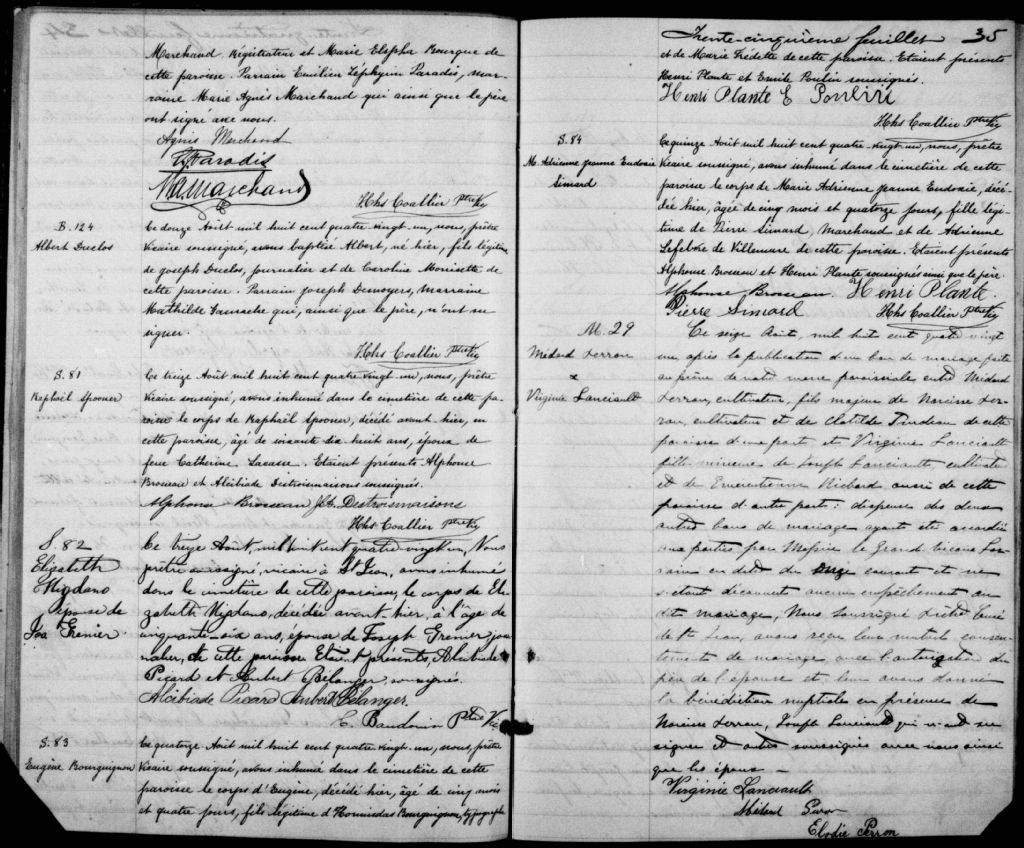 Marchand Régistrateur et Marie Elspha Bourque de
cette paroisse. Parrain Emilien Zéphyrin Paradis, mar-
raine Marie Agnès Marchand qui ainsi que le père
ont signé avec nous.
Agnès Marchand
Paradis
Marchand
Hhs Coallier Ptre Vic
B. 124
Albert Duclos
Ce douze Août mil huit cent quatre vingt un, nous, prêtre
Vicaire soussigné, avons baptisé Albert, né hier, fils légitime
de Joseph Duclos, journalier et de Caroline Morisette de
cette paroisse. Parrain Joseph Demoyers, marraine
Mathilde qui, ainsi que le père, n'ont su
signer.
Hhs Coallier Ptre Vic
S. 81
Raphaël Spooner
Ce treize Août mil huit cent quatre vingt un, nous, prêtre
Vicaire soussigné, avons inhumé dans le cimetière de cette pa-
roisse le corps de Raphaël Spooner, décédé avant hier, en
cette paroisse, âgé de soixante dix huit ans, époux de
feue Catherine Lacasse. Etaient présents Alphonse
Brosseau et Alcibiade Destroismaisons soussignés.
Alphonse Brosseau Destroismaisons
Hhs Coallier Ptre Vic
S. 82
Elizabeth
épouse de
Jos Grenier
Ce treize Août, mil huit cent quatre vingt un, Nous
prêtre soussigné, vicaire à St Jean, avons inhumé
dans le cimetière de cette paroisse, le corps de Eli-
zabeth décédée avant-hier, à l'âge de
cinquante-six ans, épouse de Joseph Grenier jour-
nalier, de cette paroisse Etaient présents, Alcibiade
Picard et Aubert Bélanger, soussignés.
Alcibiade Picard Aubert Bélanger.
Baudouin Ptre Vic
S. 83
Eugène Bourguignon
Ce quatorze Août mil huit cent quatre vingt-un, nous, prêtre
Vicaire soussigné, avons inhumé dans le cimetière de cette
paroisse le corps d'Eugène, décédé hier, âgé de cinq mois
et quatre jours, fils légitime d'Hormisdas Bourguignon, typographe
Trente-cinquième feuillet 35
et de Marie Frédette de cette paroisse. Etaient présents
Henri Plante et Emile Poulin soussignés.
Henri Plante E Poulin
Hhs Coallier Ptre Vic
S. 84
M. Adrienne Jeanne Eudoxie
Simard
Ce quinze Août mil huit cent quatre vingt-un, nous, prêtre
Vicaire soussigné, avons inhumé dans le cimetière de cette
paroisse le corps de Marie Adrienne Jeanne Eudoxie, décé-
dée hier, âgée de cinq mois et quatorze jours, fille légi-
time de Pierre Simard, Marchand et de Adrienne
Lefebvre de Villemure de cette paroisse. Etaient présents
Alphonse Brosseau et Henri Plante soussignés ainsi que le père.
Alphonse Brosseau Henri Plante.
Pierre Simard Hhs Coallier Ptre Vic
M. 29
Médard Perron
&
Virginie Lanciault
Ce seize Août, mil huit cent quatre vingt
un, après la publication d'un ban de mariage faite
au prône de notre messe paroissiale entre Médard
Perron, cultivateur, fils majeur de Narcisse Per-
ron, cultivateur et de Clotilde de cette
paroisse d'une part et Virginie Lanciault
fille mineure de Joseph Lanciault, cultivateur
et de aussi de cette
paroisse d'autre part: dispense des deux
autres bans de mariage ayant été accordée
aux parties par Messire le Grand Vicaire Lor-
rain en date du onze courant et ne
s'étant découvert aucun empêchement au
dit mariage, Nous soussigné Prêtre Curé
de St Jean, avons reçu leur mutuel consen-
tement de mariage avec l'autorisation du
père de l'épouse et leur avons donné
la bénédiction nuptiale en présence de
Narcisse Perron, Joseph Lanciault qui n'ont su
signer et autres soussignés avec nous ainsi
que les époux —
Virginie Lanciault
Médard Peron
Elodie Perron